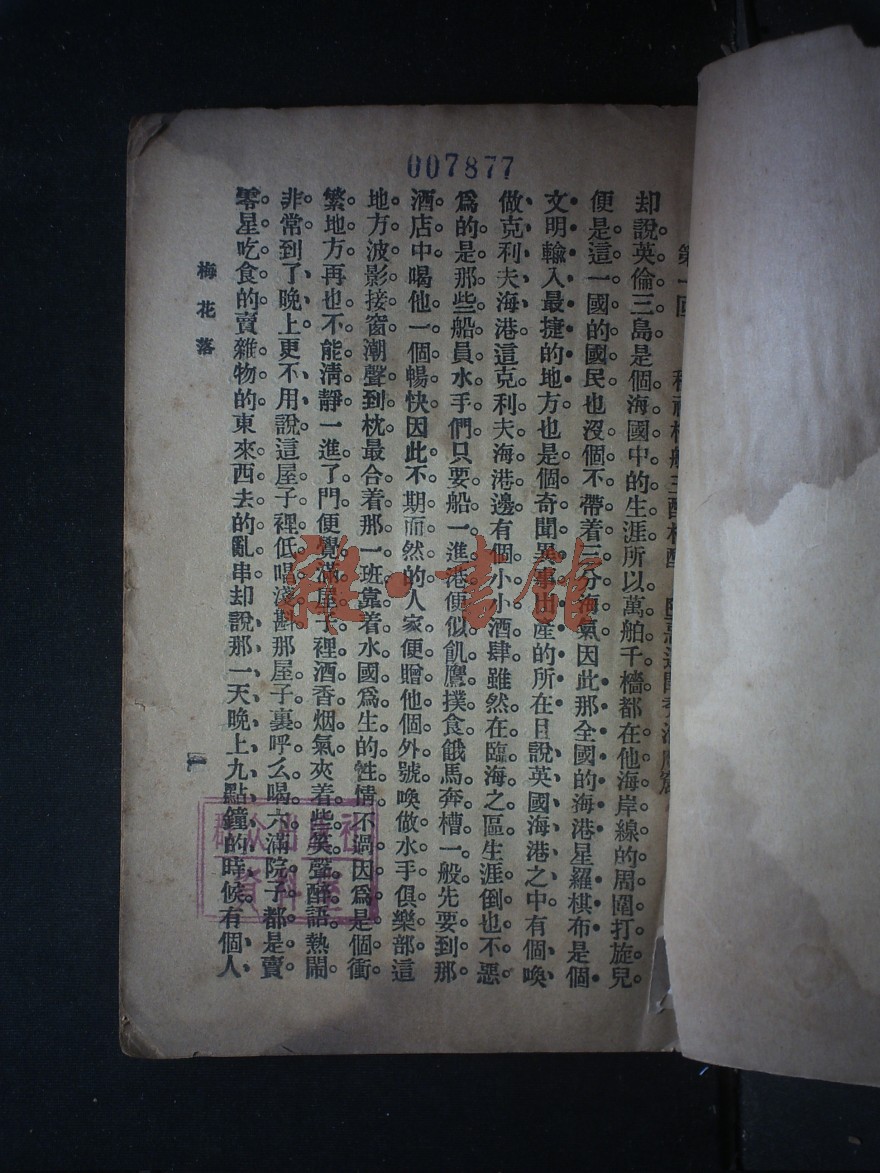 007877
第一回
却說英倫三島是個海國中的生涯所以萬舶千檣都在他海岸線的周圍打旋兒
便是這一國的國民也沒個不帶着三分海氣因此那全國的海港星羅棋布是個
文明輸入最捷的地方也是個奇聞異事出産的所在且說英國海港之中有個喚
做克利夫海港這克利夫海港邊有個小小酒肆雖然在臨海之區生涯倒也不惡
爲的是那些船員水手們只要船一進港便似飢鷹撲食餓馬奔槽一般先要到那
酒店中喝他一個暢快因此不期而然的人家便贈他個外號喚做水手俱樂部這
地方波影接窗潮聲到枕最合着那一班靠着水國爲生的性情不過因爲是個衝
繁地方再也不能淸靜一進了門便覺滿屋子裡酒香烟氣夾着些笑聲醉語熱鬧
非常到了晚上更不用說這屋子裡低唱淺斟那屋子裏呼幺喝六滿院子都是賣
零星吃食的賣雜物的東來西去的亂串却說那一天晚上九點鐘的時候有個人
梅花落
一
群众出版社
資料室
雜·書館